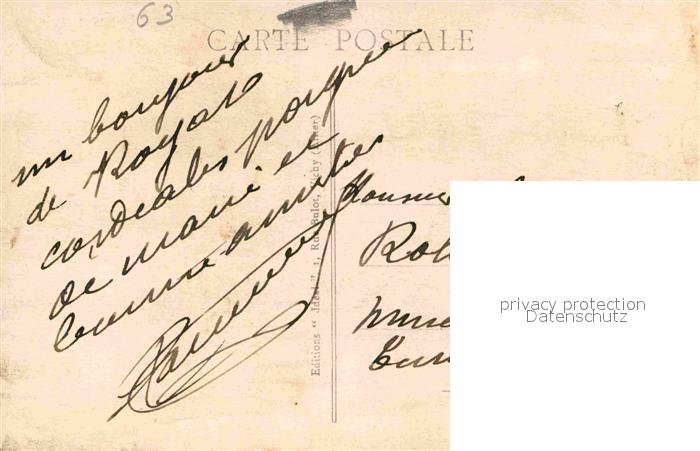 63
CARTE POSTALE
un bonjour
de Royat
cordiales poignée
de main et
bonne amitiés
Editions "Ideal", 1, Rue Balot, Vichy (Allier)
Monsieur
Rob
privacy protection
Datenschutz